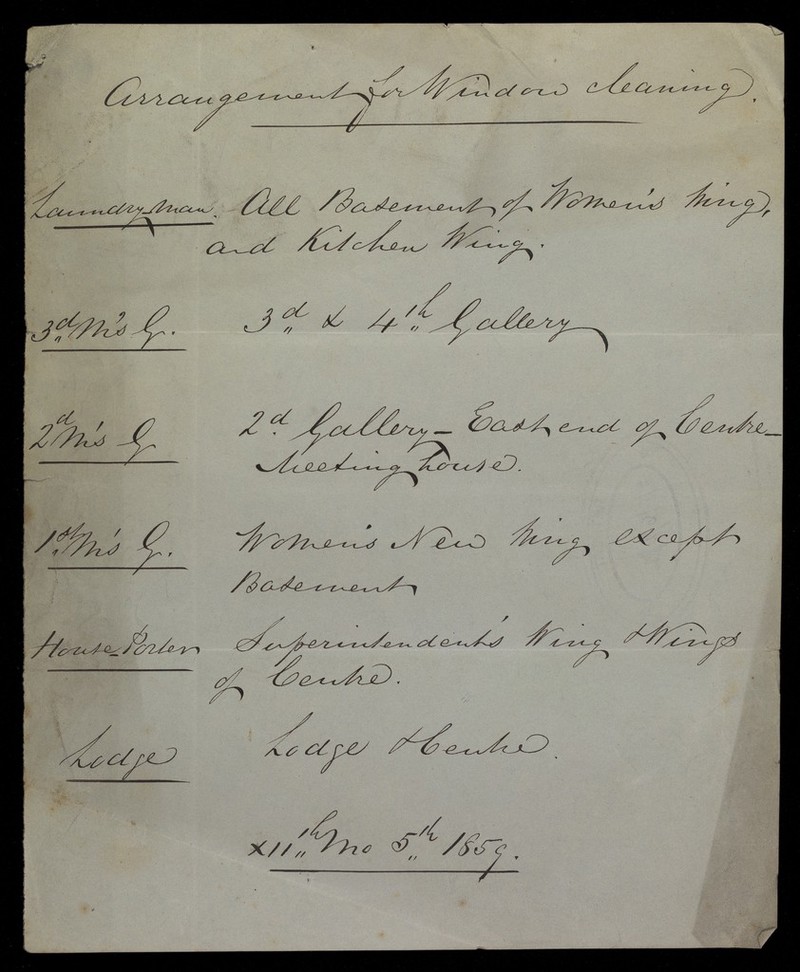 Arrangement for Window cleaning.
Laundry-man. All Basement of Women's Wing,
and Kitchen Wing.
3d M's G. 3d & 4th Gallery
2d M's G 2d Gallery - East end of Centre -
Meeting house.
1st M's G. Women's New Wing except
Basement
House-Porter Superintendent's Wing & Wings
of Centre.
Lodge Lodge & Centre.
x11th Mo 5th 1859.